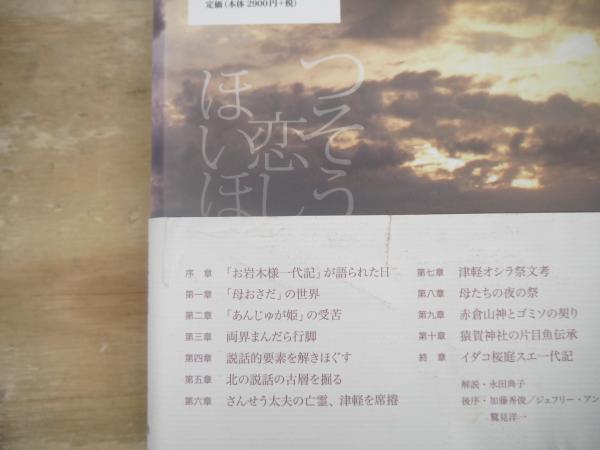 定価(本体2900円+税)
つそう
恋し
ほいほ
序　章　「お岩木様一代記」が語られた日
第一章　「母おさだ」の世界
第二章　「あんじゅが姫」の受苦
第三章　両界まんだら行脚
第四章　説話的要素を解きほぐす
第五章　北の説話の古層を掘る
第六章　さんせう太夫の亡霊、津軽を席捲
第七章　津軽オシラ祭文考
第八章　母たちの夜の祭
第九章　赤倉山神とゴミソの契り
第十章　猿賀神社の片目魚伝承
終　章　イダコ桜庭スエ一代記
解説・永田典子
後序・加藤秀俊／ジェフリー・アン
鷲見洋一